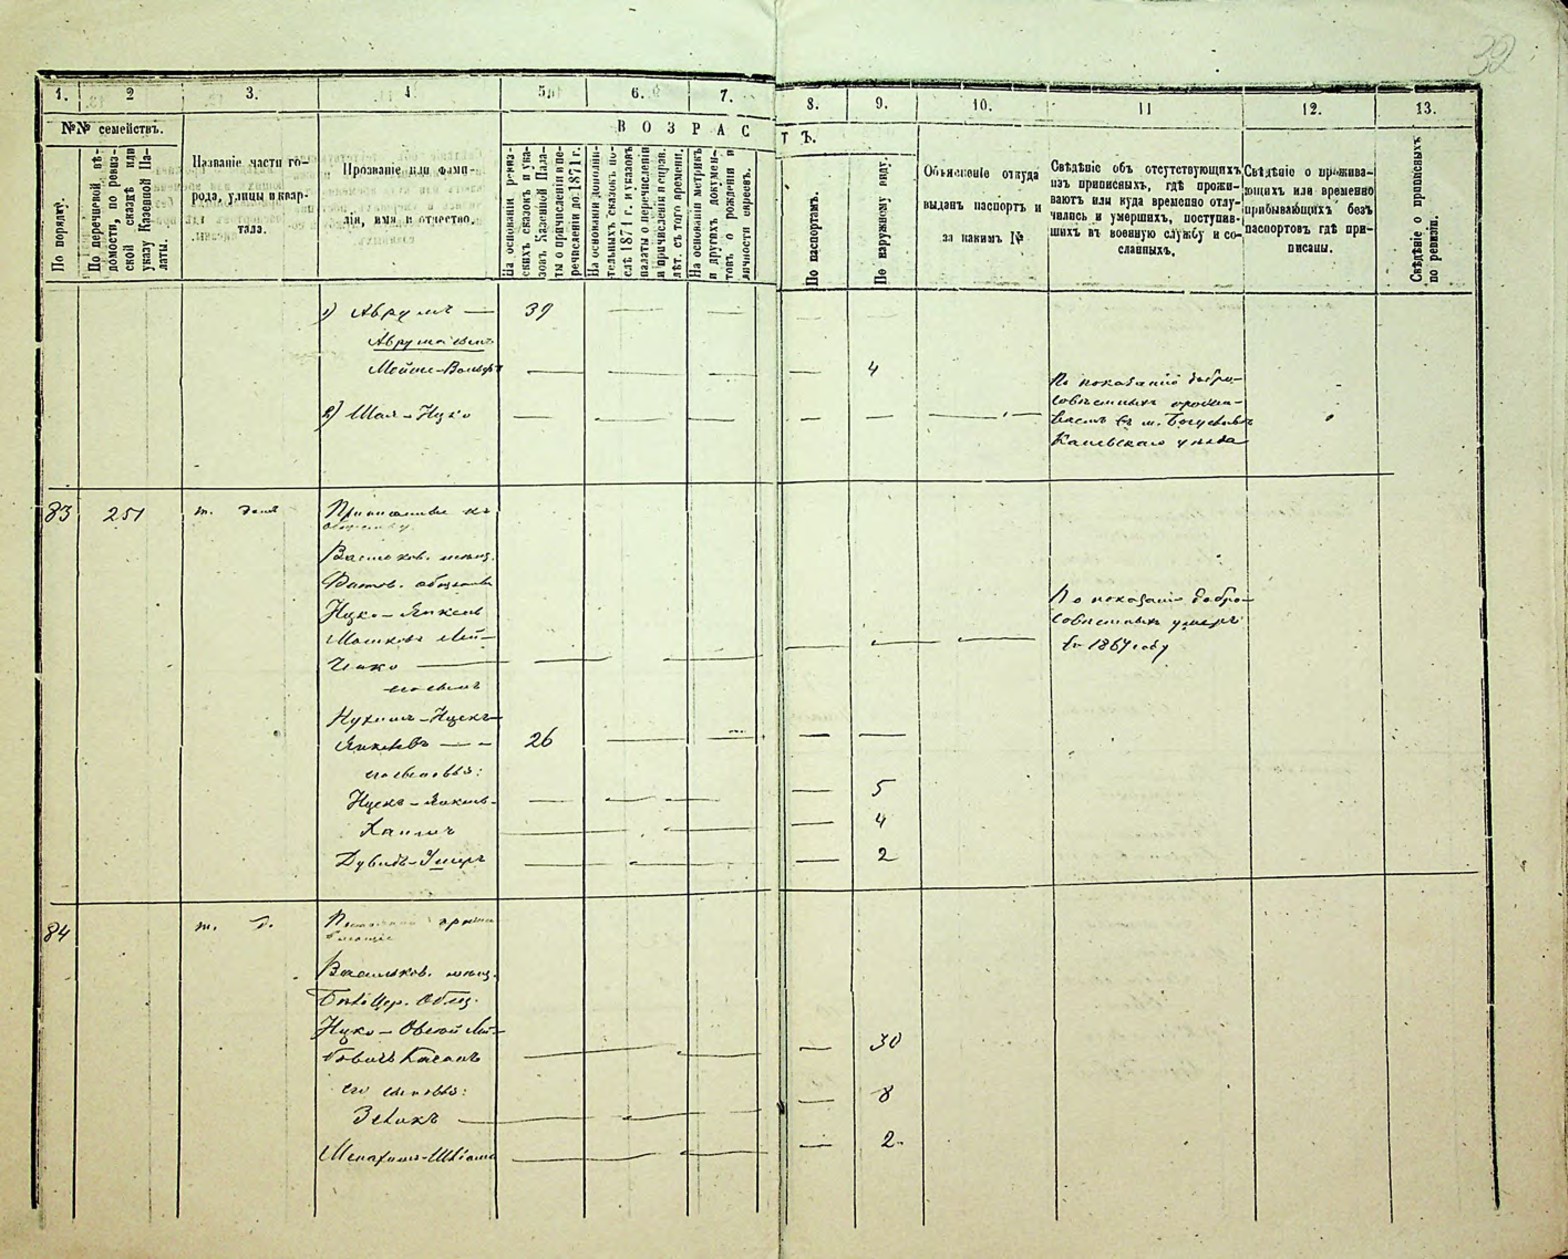 32
1. 2 3. 4 5. 6. 7. 8. 9. 10. 11 12. 13.
№№ семействъ.
В О З Р А С Т Ъ.
По порядку.
По перечневой вѣ-
домости, по ревиз-
ской сказкѣ или
указу Казенной Па-
латы.
Названіе части го-
рода, улицы и квар-
тала.
Прозваніе или фами-
лія, имя и отчество.
На основаніи реви-
скихъ сказокъ и ука-
зовъ Казенной Пала-
ты о причисленіи и пе-
речисленіи до 1871 г.
На основаніи дополни-
тельныхъ сказокъ по-
слѣ 1871 г. и указовъ
палаты о перечисленіи
и причисленіи и справ.
лѣт. съ того времени.
На основаніи метрикъ
и другихъ докумен-
товъ о рожденіи и
личности евреевъ.
По паспортамъ.
По наружному виду.
Объясненіе откуда
выданъ паспортъ и
за какимъ №
Свѣдѣніе объ отсутствующихъ
изъ приписныхъ, гдѣ прожи-
ваютъ или куда временно отлу-
чились и умершихъ, поступив-
шихъ въ военную службу и со-
сланныхъ.
Свѣдѣніе о прожива-
ющихъ или временно
прибывающихъ безъ
паспортовъ гдѣ при-
писаны.
Свѣдѣніе о приписныхъ
по ревизіи.
1) Аврумъ — 39
Мойше-Вольфъ 4
2) Шая-Ицко
По показанію добро-
совѣстныхъ прожи-
ваетъ въ м.
Каневскаго уѣзда
83 251 т. домъ
Приписанные къ
мѣщ.
Ицко-Янкель
Мошковъ Лей-
его сынъ
Нухимъ-Ицекъ-
Янкелевъ 26
его сыновья:
Ицекъ-Янкель 5
Хаимъ 4
Дувидъ-Ушеръ 2
По показанію добро-
совѣстныхъ умеръ
въ 1867 году
84 т. д.
Васильков. мѣщ.
Бѣлоцер. Общ.
Ицко-Овсей Лей-
бовичъ 30
его сыновья:
Зеликъ 8
2